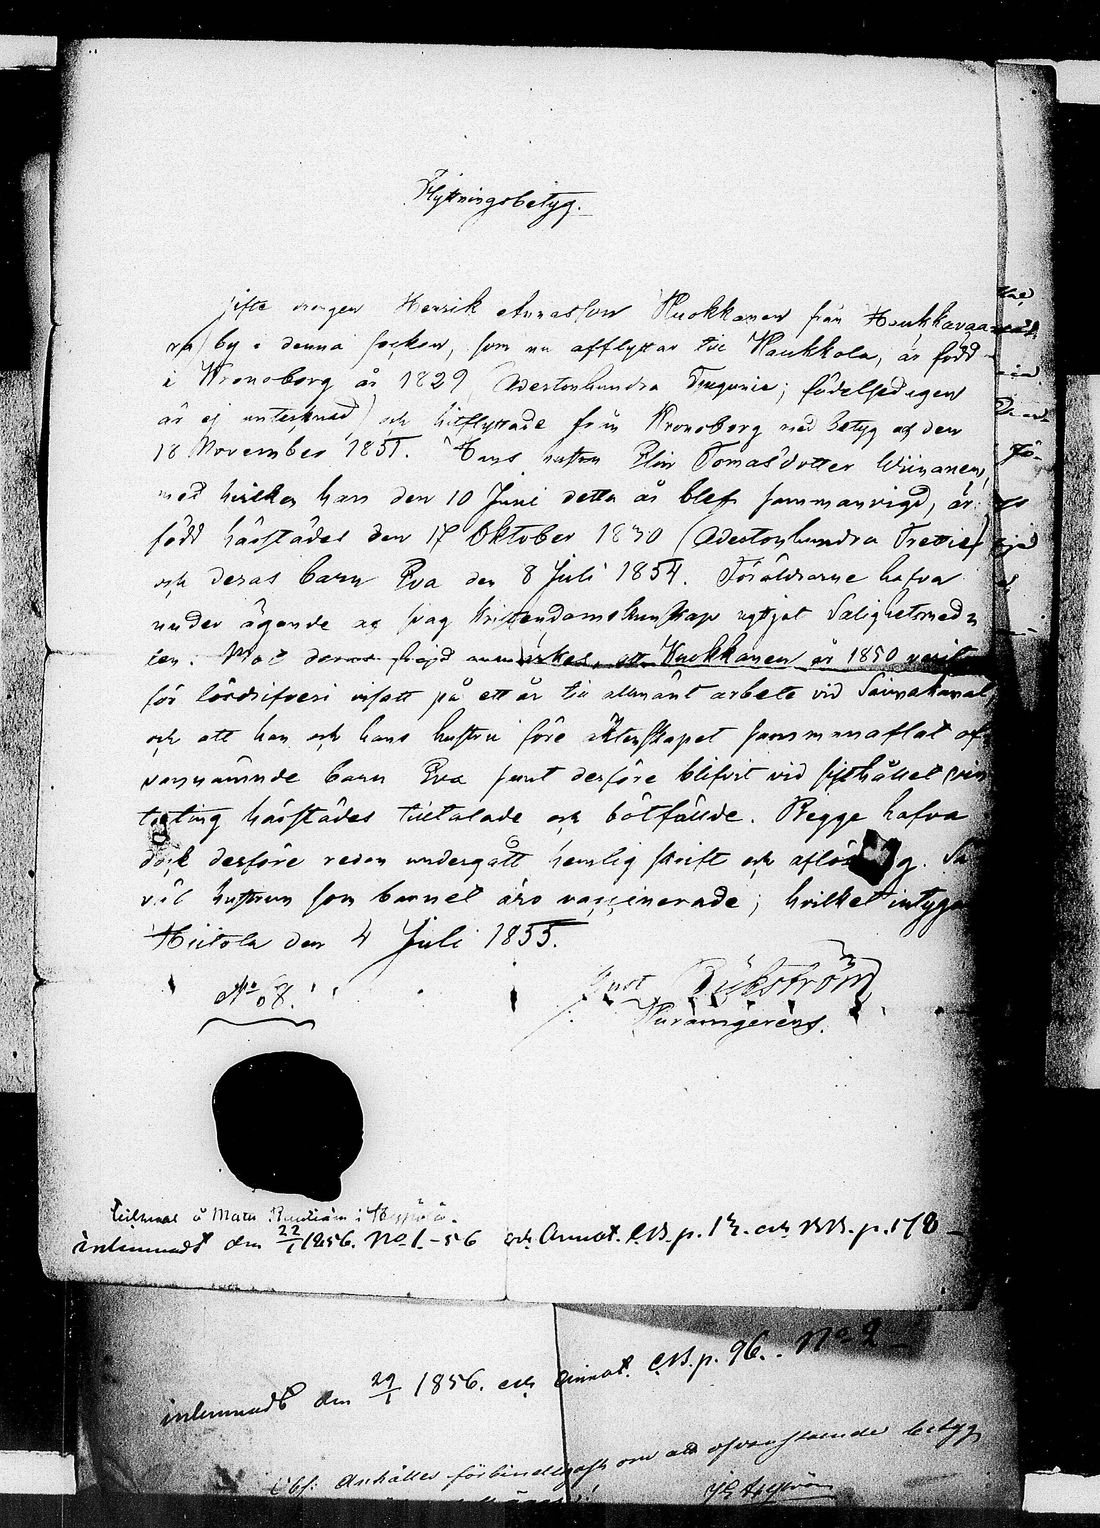 Flyttningsbetyg.
gifte drengen Henrik Andersson Kuokkanen från Haukkavaa-
ra by i denna socken, som nu afflyttar till Haukkola, är född
i Kronoborg år 1829 (Adertonhundra Tjugunie; födelsedagen
är ej antecknad) och hitflyttade från Kronoborg med betyg af den
18 November 1851. Hans hustru Elin Tomasdotter Wiinanen,
med hvilken han den 10 Juni detta år blef sammanvigd, är
född härstädes den 17 Oktober 1830 (Adertonhundra Trettie)
och deras barn Eva den 8 Juli 1854. Föräldrarne hafva
under ägande af svag kristendomskunskap nyttjat Salighetsmed-
len. Mot deras frejd anmärkes, att Kuokkanen år 1850 varit
för lösdrifveri insatt på ett år till allmänt arbete vid Saima kanal,
och att han och hans hustru före äktenskapet sammanaflat of-
vannämnde barn Eva samt derföre blifvit vid sisthållet vin-
terting härstädes tilltalade och bötfällde. Begge hafva
dock derföre redan undergått hemlig skrift och aflösning. Så
väl hustrun som barnet äro vaccinerade; hvilket intygar
Hiitola den 4 Juli 1855.
No 68.
Gust
i
inlemnadt den 22/1 1856. No 1.-56 och Annot. C.B.p. 12. och B.B.p. 178
inlemnadt den 29/1 1856. och Annot. C.B.p. 96. No 2
Obs: Anhålles förbindligast om att ofvanstående betyg